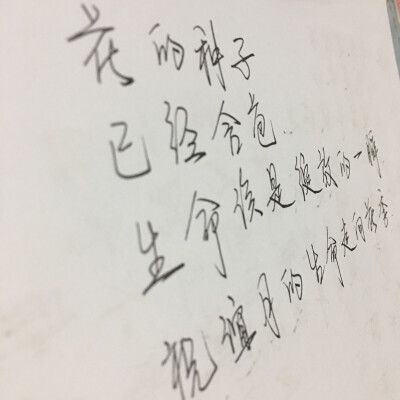 花的种子
已经含苞
生命该是绽放的一瞬
祝谊月的生命走向花季